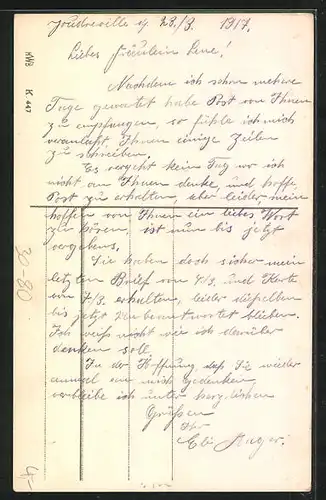 Joudreville d. 23./3. 1917.
Liebes Fräulein Lene!
Nachdem ich schon mehrere
Tage gewartet habe Post von Ihnen
zu empfangen, so fühle ich mich
veranlaßt, Ihnen einige Zeilen
zu schreiben.
Es vergeht kein Tag wo ich
nicht an Ihnen denke, und hoffe
Post zu erhalten, aber leider, mein
hoffen von Ihnen ein liebes Wort
zu hören, ist nun bis jetzt
vergebens.
Sie haben doch sicher mein
letzten Brief vom 4/3. und Karte
vom 7/3. erhalten, leider dieselben
bis jetzt unbeantwortet blieben.
Ich weiß nicht wie ich darüber
denken soll.
In der Hoffnung daß Sie wieder
einmal an mich gedenken
verbleibe ich unter herzlichen
Grüßen
Ihr
HWB K 447
30-80
4,-